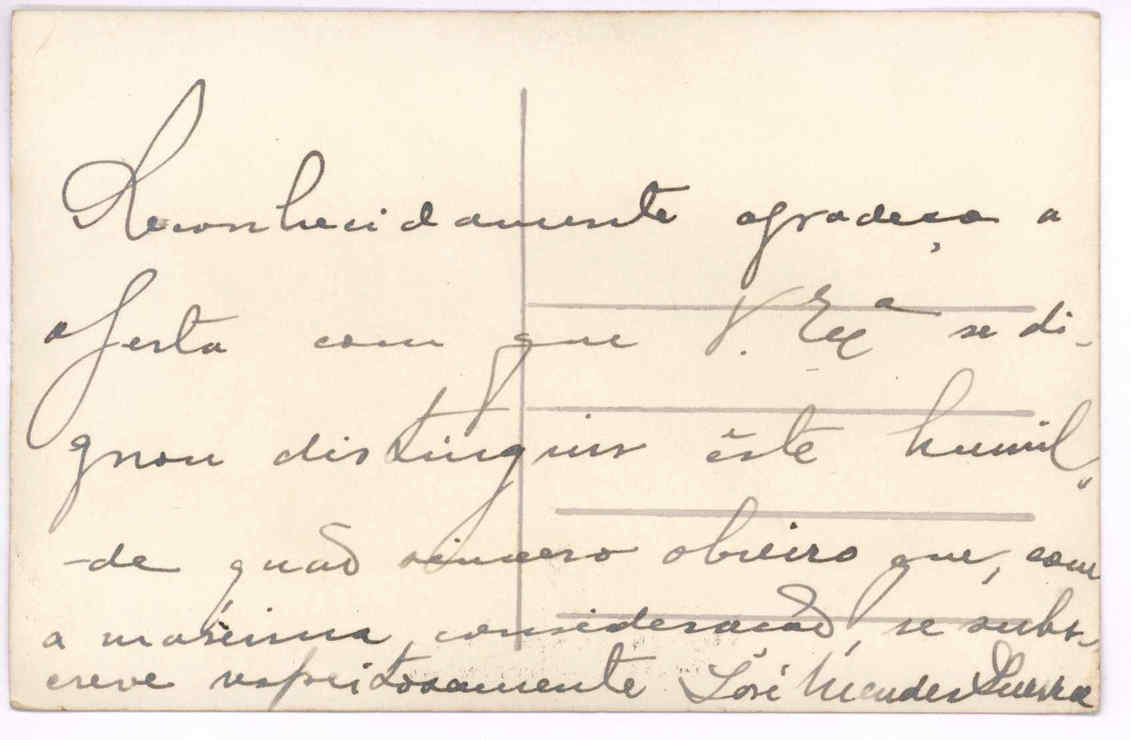 Reconhecidamente agradeço a
oferta com que V. Exª se di-
gnou distinguir êste humil-
-de quão sincero obreiro que, com
a máxima consideração, se subs-
creve respeitosamente José Mendes Guerra